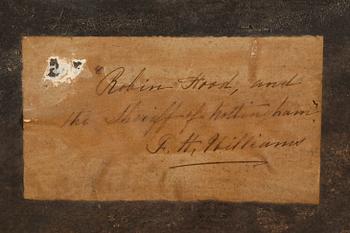 "Robin Hood, and
the Sheriff of Nottingham.
F. H. Williams